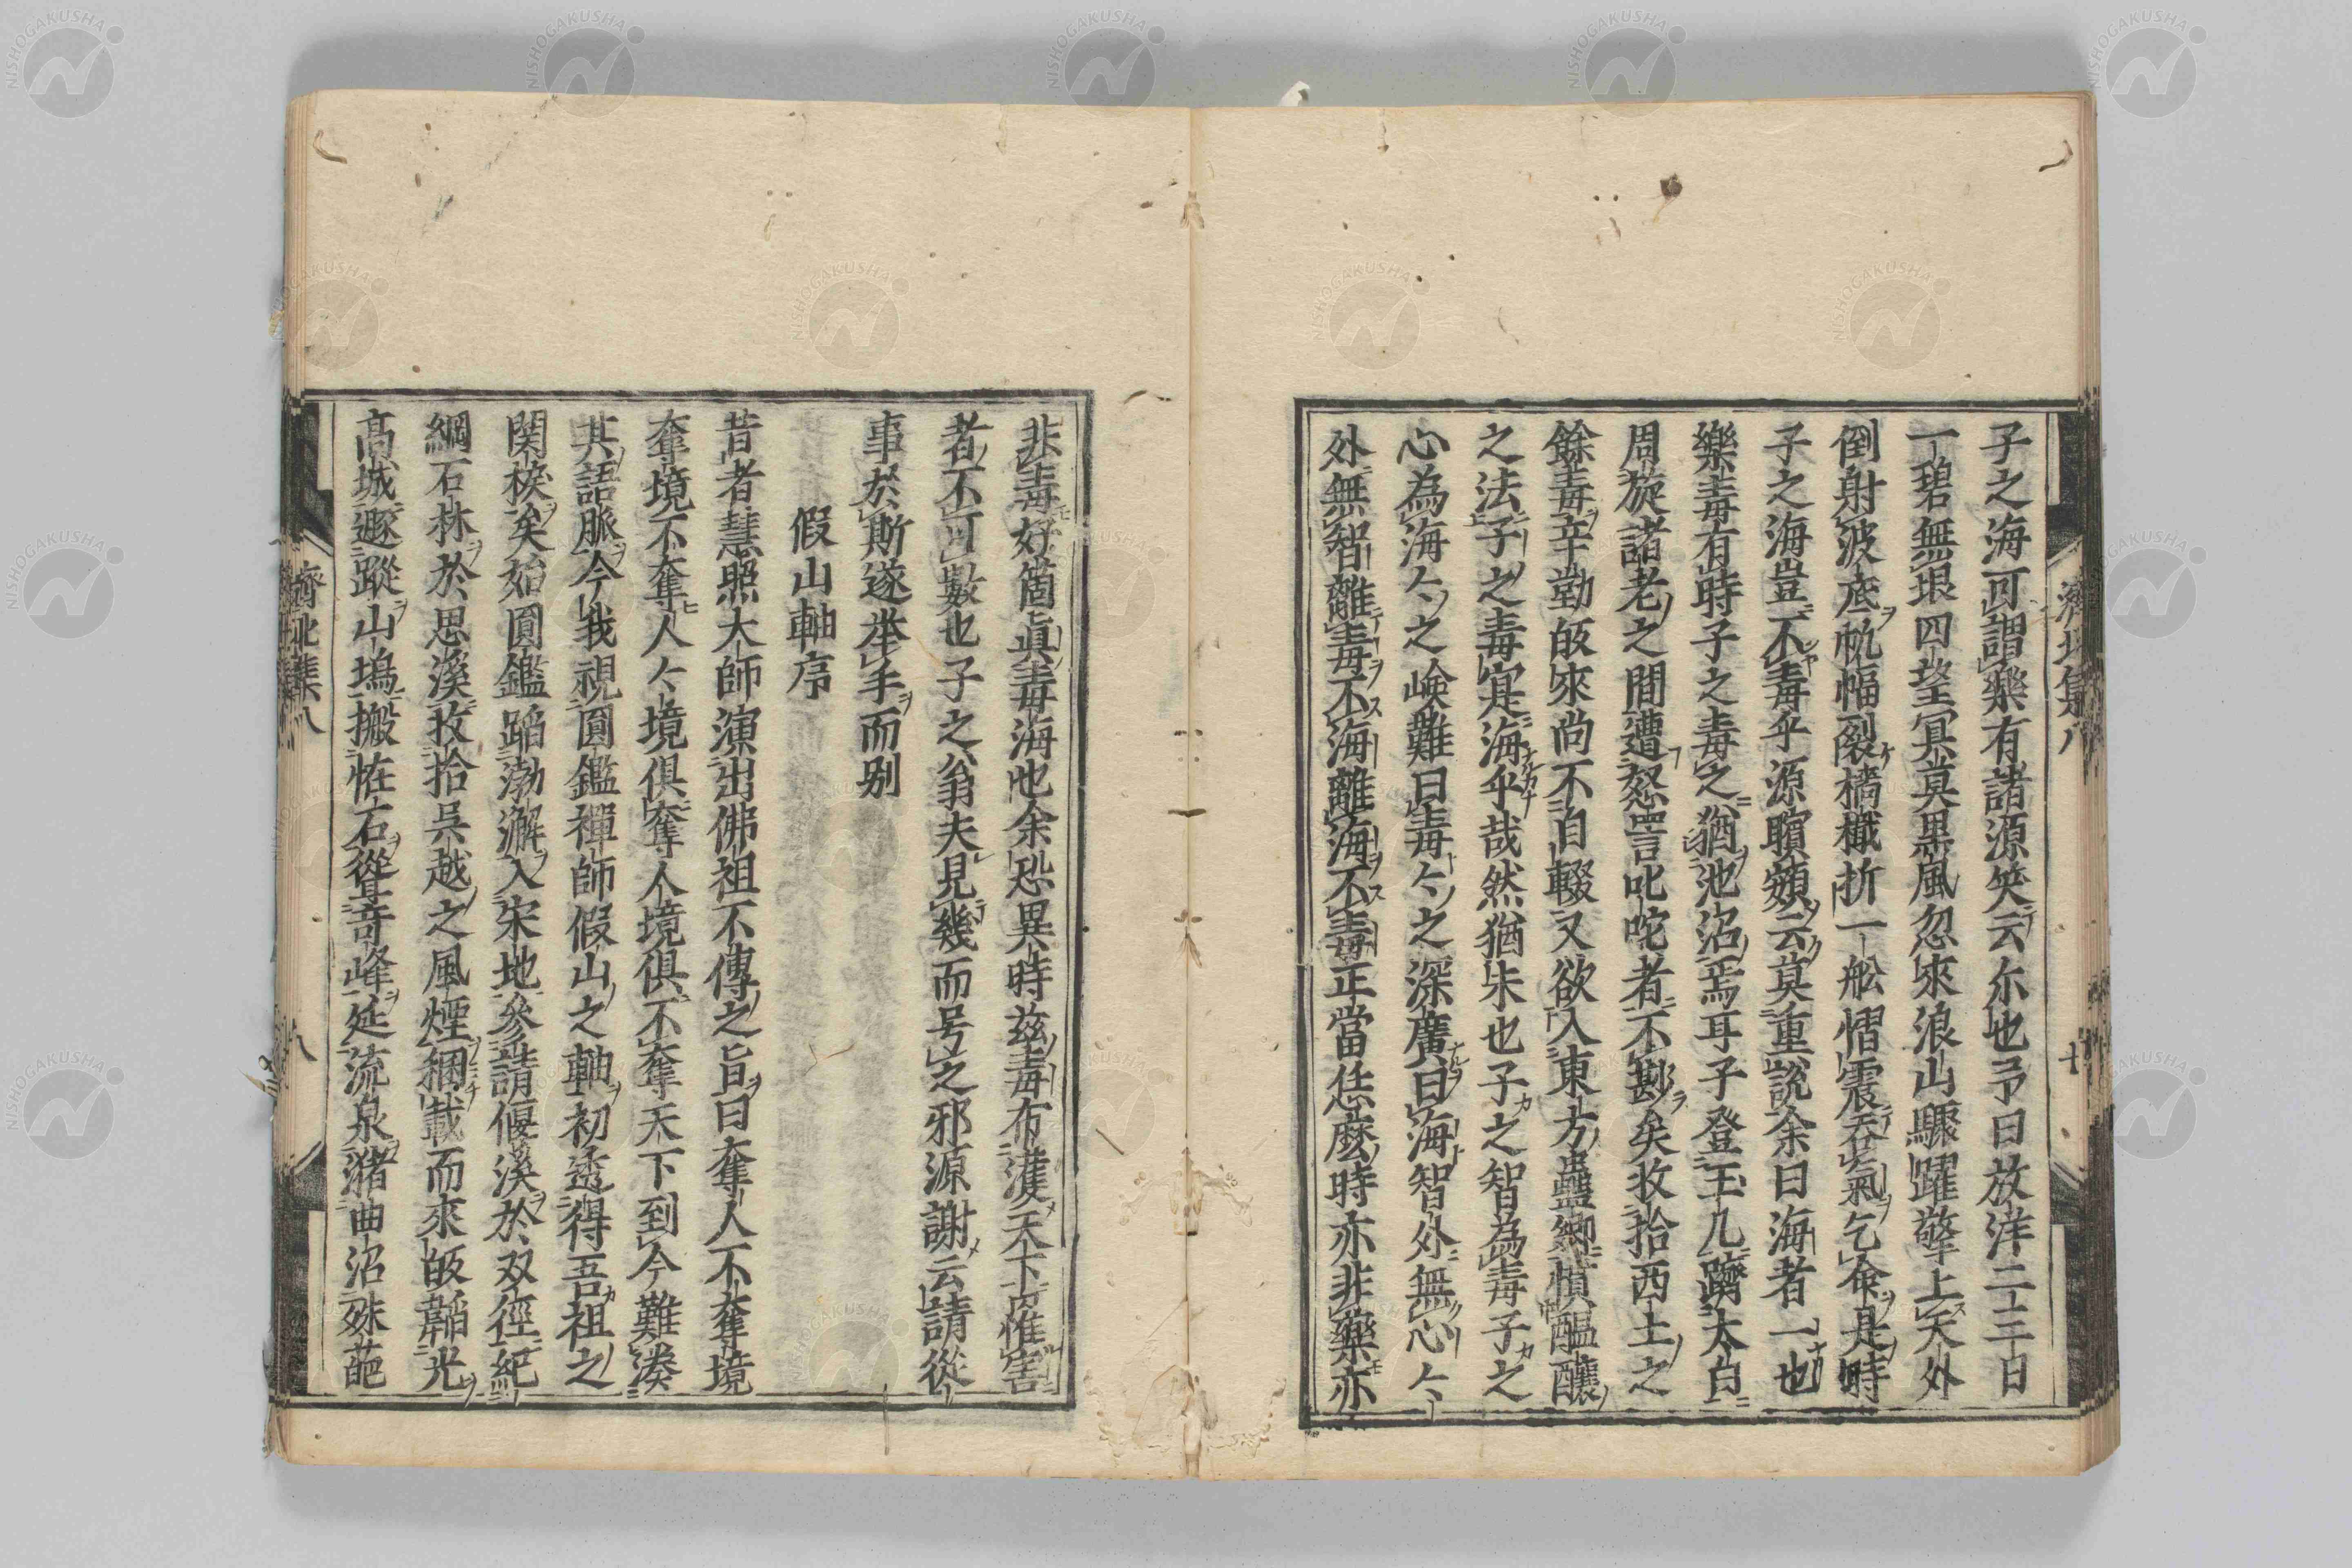 子之海可謂藥有諸源笑云尓也予曰放洋二三日
一碧無垠四望冥莫黒風忽來浪山驟躍擎上天外
倒射波底帆幅裂檣檥折一舩慴震吞氣乞命是時
子之海豈不毒乎源矉頞云莫重說余曰海者一也
樂毒有時子之毒之猶池沼焉耳子登玉几躋太白
周旋諸老之間遭怒詈叱咤者不尠矣收拾西土之
餘毒辛勤皈來尚不自輟又欲入東方蠱鄉慎醞釀
之法子之毒寔海乎哉然猶未也子之智為毒子之
心為海々之嶮難曰毒々之深廣曰海智外無心々
外無智離毒不海離海不毒正當恁麼時亦非藥亦
非毒好箇眞毒海也余恐異時兹毒布濩天下罹害
者不可數也子之翁夫見幾而号之邪源謝云請從
事於斯遂举手而别
假山軸序
昔者慧照大師演出佛祖不傳之旨曰奪人不奪境
奪境不奪人々境俱奪人境俱不奪天下到今難湊
其語脈今我視圓鑑禪師假山之軸初透得吾祖之
関棙矣始圓鑑蹈渤澥入宋地參請偃溪於双徑紀
綱石林於思溪收拾吳越之風煙捆載而來皈韜光
髙城遯蹤山塢搬恠石聳奇峰延流泉瀦曲沼殊葩
濟北集八
十
濟北集八
八
NISHOGAKUSHA